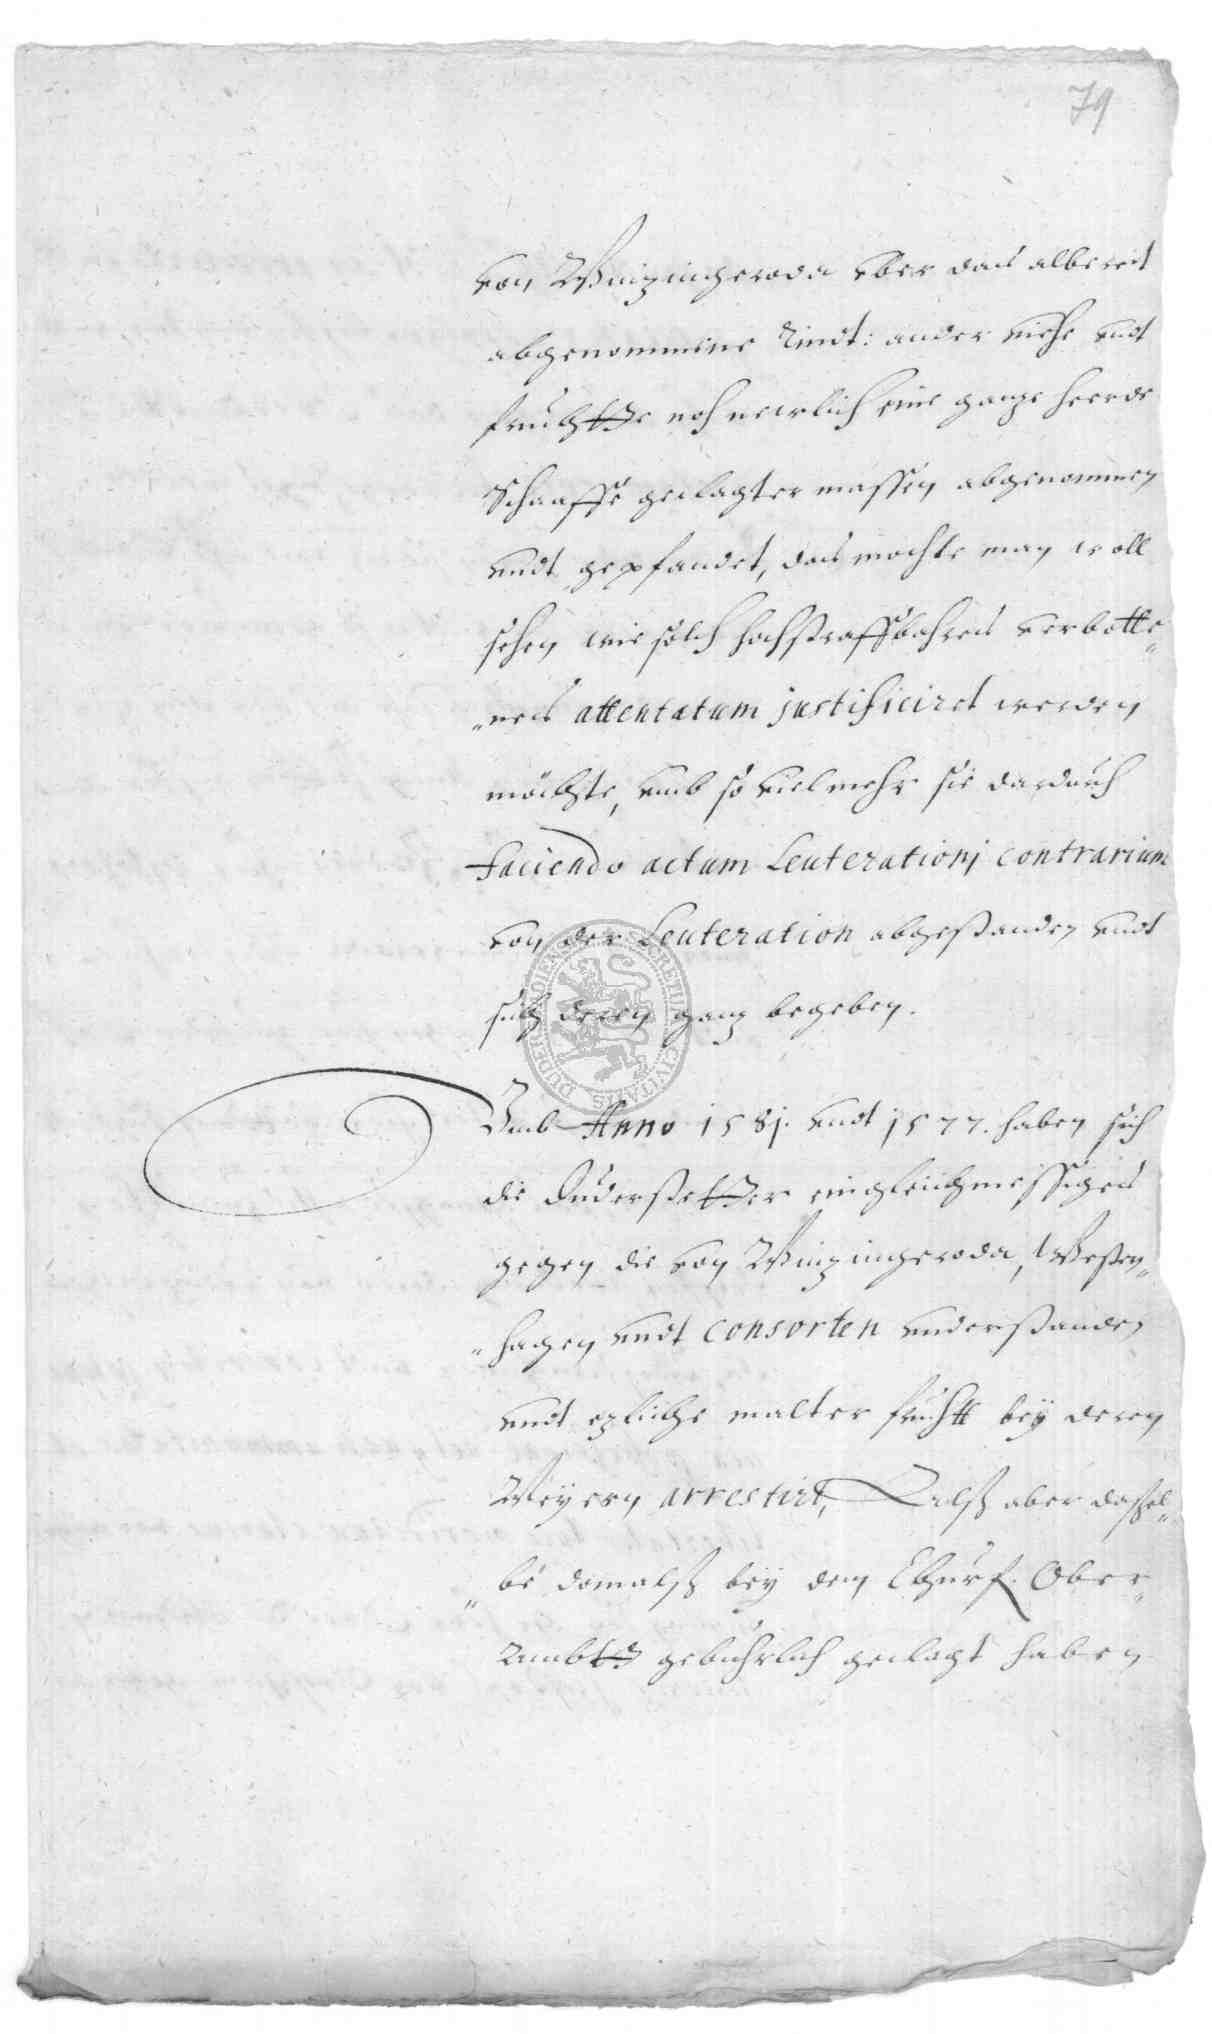 79
von Wintzingeroda vber das albereit
abgenommene Rindt: ander viehe vndt
fruchtte noch newlich eine gantze heerde
Schaaffe geclagter massen abgenommen
vndt gepfandet, das mochte man woll
sehen wie solch hochstraffbahres verbotte„
„nes attentatum justificiret werden
möchte, vmb so viel mehr sie dardurch
faciendo actum Leuterationj contrarium
von der Leuteration abgestanden vndt
sich deren gantz begeben.
Vmb Anno 1581. vndt 1577. haben sich
die Duderstetter eingleichmessiges
gegen die von Wintzingeroda, Westen„
„hagen vndt consorten vnderstanden
vndt etzliche malter frucht bey deren
Meyern arrestirt, Alß aber dassel„
„be domalß bey dem Churf. Ober„
Ambtt gebührlich geclagt haben
DUDER CIVITATIS